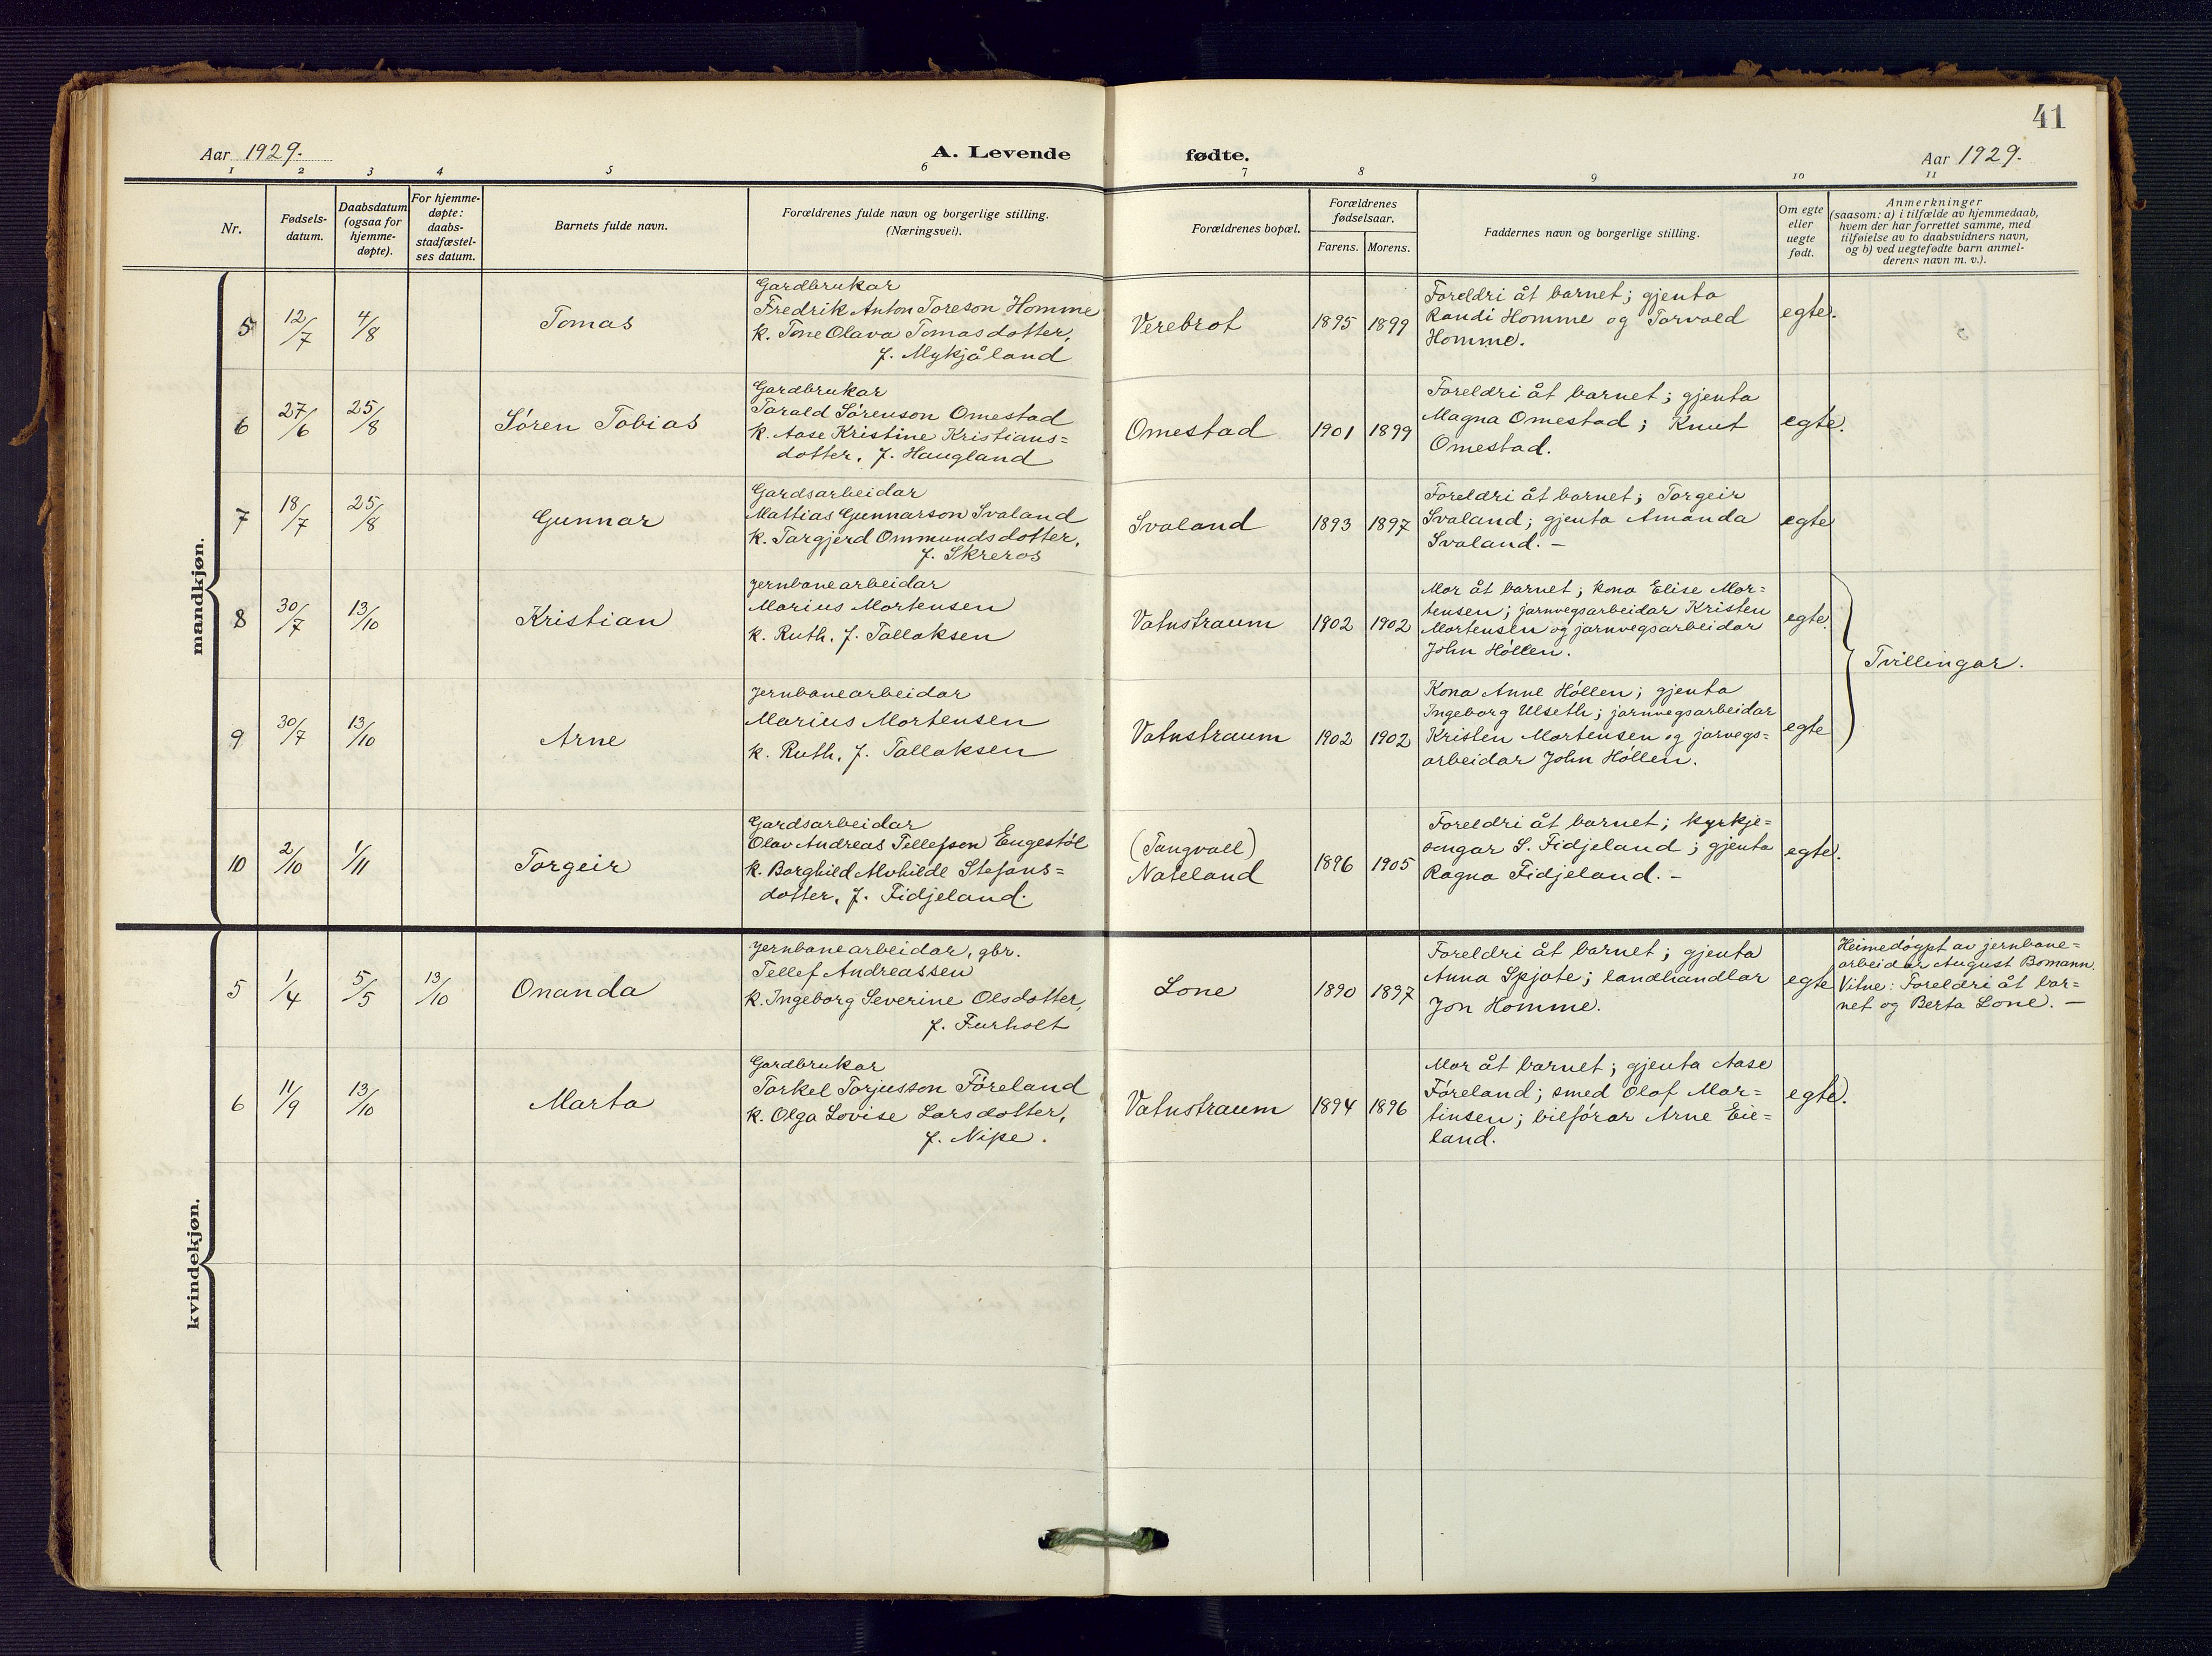 41
Aar 1929.
A. Levende
fødte.
Aar 1929.
1 2 3 4 5 6 7 8 9 10 11
Nr.
Fødsels-
datum.
Daabsdatum
(ogsaa for
hjemme-
døpte).
For hjemme-
døpte:
daabs-
stadfæstel-
ses datum.
Barnets fulde navn.
Forældrenes fulde navn og borgerlige stilling.
(Næringsvei).
Forældrenes bopæl.
Forældrenes
fødselsaar.
Farens. Morens.
Faddernes navn og borgerlige stilling.
Om egte
eller
uegte
født.
Anmerkninger
(saasom: a) i tilfælde av hjemmedaab,
hvem der har forrettet samme, med
tilføielse av to daabsvidners navn,
og b) ved uegtefødte barn anmel-
derens navn m. v.).
mandkjøn.
5 12/7 4/8
Tomas
Gardbrukar
Fredrik Anton Toreson Homme
k. Tone Olava Tomasdotter,
f. Mykjåland
Verebrot
1895 1899
Foreldri åt barnet; gjenta
Randi Homme og Torvald
Homme.
egte.
6 27/6 25/8
Søren Tobias
Gardbrukar
Tarald Sørenson Omestad
k. Aase Kristine Kristians=
dotter, f. Haugland
Omestad
1901 1899
Foreldri åt barnet; gjenta
Magna Omestad; Knut
Omestad.
egte.
7 18/7 25/8
Gunnar
Gardsarbeidar
Mattias Gunnarson Svaland
k. Targjerd Ommundsdotter,
f. Skreros
Svaland
1893 1897
Foreldri åt barnet; Torgeir
Svaland; gjenta Amanda
Svaland. –
egte
8 30/7 13/10
Kristian
Jernbanearbeidar
Marius Mortensen
k. Ruth, f. Tallaksen
Vatnstraum
1902 1902
Mor åt barnet; kona Elise Mor=
tensen; jarnvegsarbeidar Kristen
Mortensen og jarnvegsarbeidar
John Høllen.
egte.
Tvillingar.
9 30/7 13/10
Arne
Jernbanearbeidar
Marius Mortensen
k. Ruth, f. Tallaksen
Vatnstraum
1902 1902
Kona Anne Høllen; gjenta
Ingeborg Ulseth; jarnvegsarbeidar
Kristen Mortensen og jarvegs=
arbeidar John Høllen.
egte
10 2/10 1/11
Torgeir
Gardsarbeidar
Olav Andreas Tellefson Engestøl
k. Borghild Alvhilde Stefans=
dotter, f. Fidjeland.
(Tangvall)
Nateland
1896 1905
Foreldri åt barnet; kyrkje=
songar S. Fidjeland; gjenta
Ragna Fidjeland. –
egte.
kvindekjøn.
5 1/4 5/5 13/10
Onanda
Jernbanearbeidar, gbr.
Tellef Andreassen
k. Ingeborg Severine Olsdotter,
f. Furholt
Lone
1890 1897
Foreldri åt barnet; gjenta
Anna Spjote; landhandlar
Jon Homme.
egte
Heimedøypt av jernbane=
arbeidar August Bomann.
Vitne: Foreldri åt bar=
net og Berta Lone. –
6 11/9 13/10
Marta
Gardbrukar
Torkel Torjusson Føreland
k. Olga Lovise Larsdotter,
f. Nipe.
Vatnstraum
1894 1896
Mor åt barnet; gjenta Aase
Føreland; smed Olof Mar=
tinsen; bilførar Arne Eie=
land.
egte.